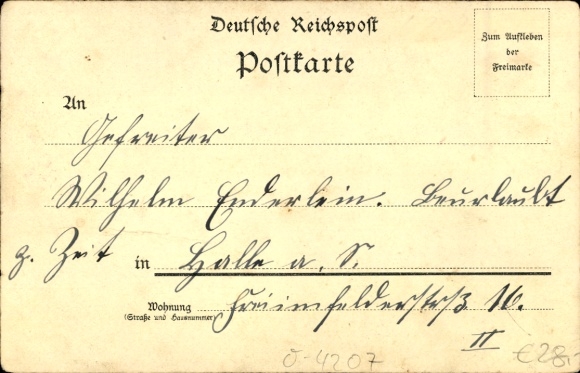 Deutsche Reichspost
Postkarte
Zum Aufkleben
der
Freimarke
An
Gefreiter
Wilhelm Enderlein. Beurlaubt
z. Zeit in Halle a. S.
Wohnung Freiimfelderstrß 16.
(Straße und Hausnummer)
II
0-4207 €28,-